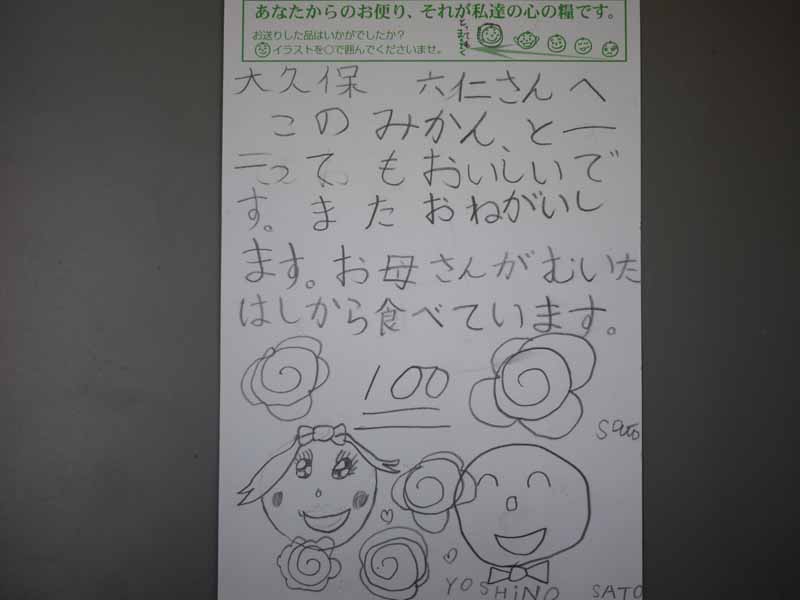 あなたからのお便り、それが私達の心の糧です。
お送りした品はいかがでしたか?
イラストを○で囲んでくださいませ。
とっても
大久保 六仁さんへ
このみかん、とー
ってもおいしいで
す。またおねがいし
ます。お母さんがむいた
はしから食べています。
100
Sato
YOSHINO SATO